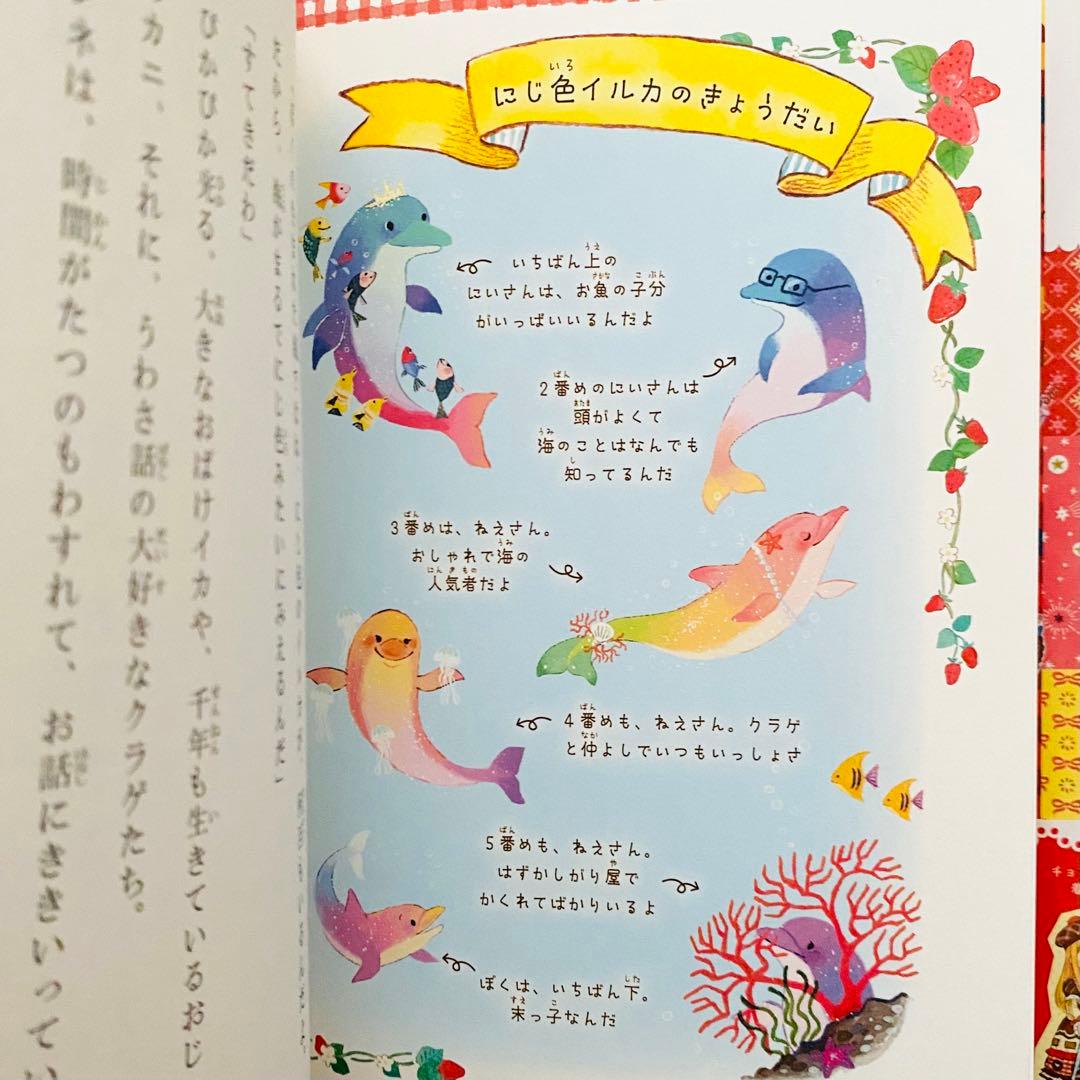 にじ色イルカのきょうだい
いちばん上の
にいさんは、お魚の子分
がいっぱいいるんだよ
2番めのにいさんは
頭がよくて
海のことはなんでも
知ってるんだ
3番めは、ねえさん。
おしゃれで海の
人気者だよ
4番めも、ねえさん。クラゲ
と仲よしでいつもいっしょさ
5番めも、ねえさん。
はずかしがり屋で
かくれてばかりいるよ
ぼくは、いちばん下。
末っ子なんだ
「すてきだわ」
ぴかぴか光る、大きなおばけイカや、千年も生きているおじ
カニ、それに、うわさ話の大好きなクラゲたち。
ネは、時間がたつのもわすれて、お話にききいってい